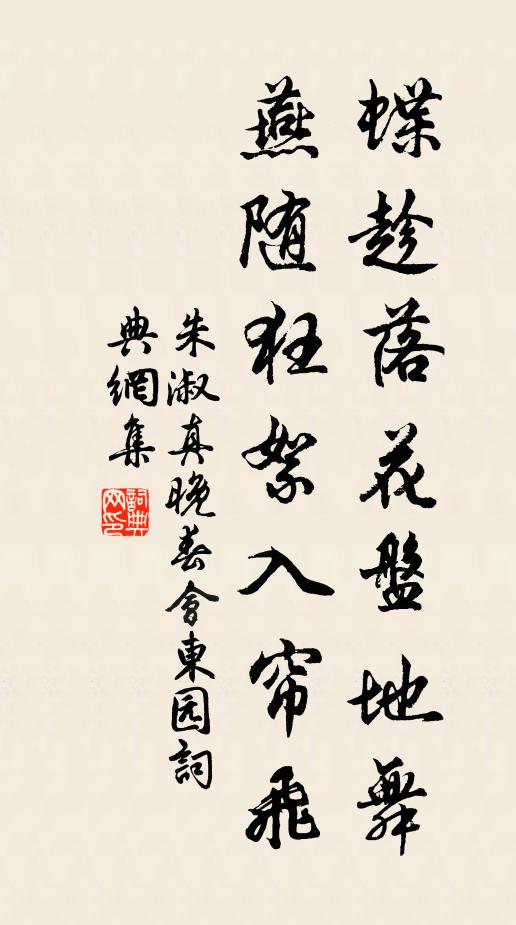 蝶趁落花盤地舞
燕随狂絮入帘飛
朱淑真晚春會東园詞
典網集
詞典
网印